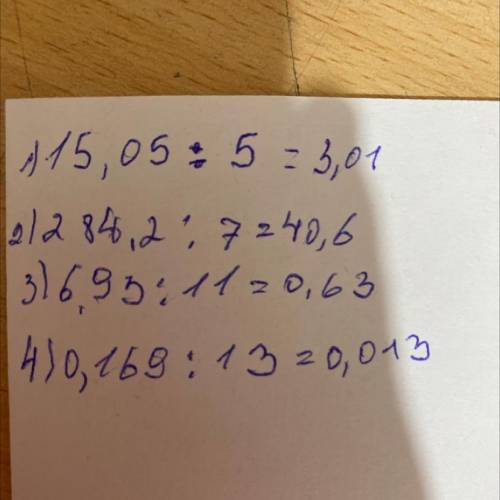 1) 15,05 ÷ 5 = 3,01
2) 284,2 : 7 = 40,6
3) 6,93 : 11 = 0,63
4) 0,169 : 13 = 0,013